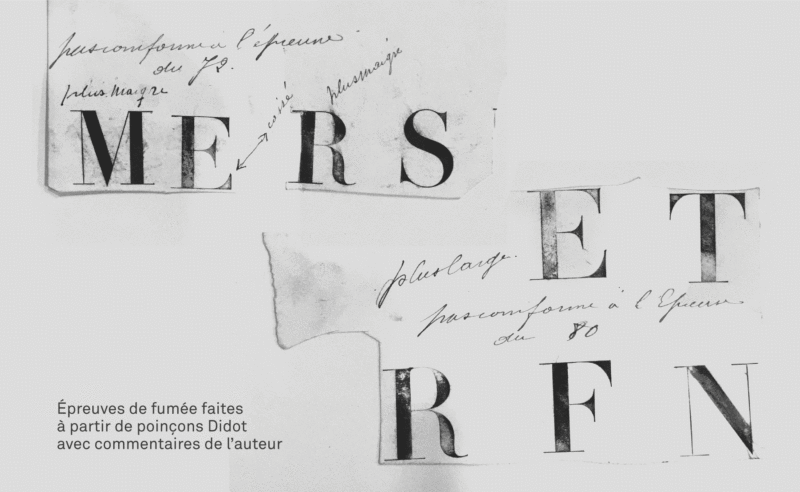 pas comforme a l'épreuve
du 72.
plus Maigre
croisé
plus maigre
M E R S
E T
plus large.
pas comforme à l'Epreuve
du 80
R F N
Épreuves de fumée faites
à partir de poinçons Didot
avec commentaires de l'auteur